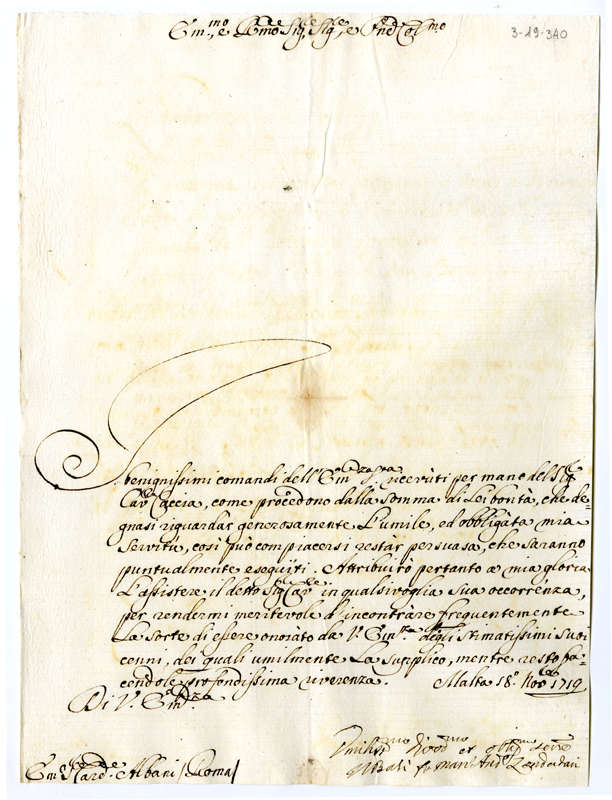 Em.mo, e R.mo Sig.re Sig.re, e P.ron Col.mo
3-19-340
I benignissimi comandi dell'Em.za v.ra ricevuti per mano del Sig.r
Cav.r Caccia, come procedono dalla somma di Lei bontà, che de=
gnasi riguardar generosamente l'umile, ed obbligata mia
servitù, così può compiacersi restar persuasa, che saranno
puntualmente eseguiti. Attribuirò pertanto a mia gloria
l'assistere il detto Sig.r Cav.re in qualsivoglia sua occorrenza,
per rendermi meritevole d'incontrare frequentemente
la sorte di essere onorato da V. Em.za degli stimatissimi suoi
cenni, dei quali umilmente la supplico, mentre resto fa=
cendole profondissima riverenza. Malta 18 Nov.bre 1719
Di V. Em.za
Umiliss.mo Divot.mo et obblig.mo serv.re
Il Balì fr Marc'Ant.o Zondadari
Em.e Card.le Albani / Roma /